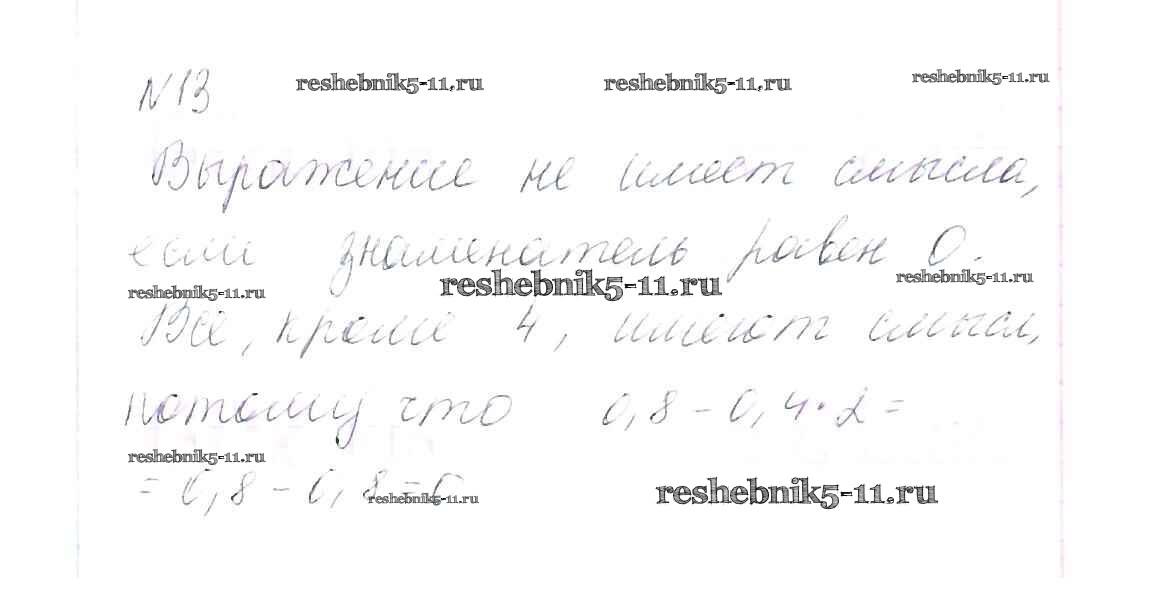 №13
reshebnik5-11.ru reshebnik5-11.ru reshebnik5-11.ru
Выражение не имеет смысла,
если знаменатель равен 0.
reshebnik5-11.ru reshebnik5-11.ru reshebnik5-11.ru
Все, кроме 4, имеют смысл,
потому что 0,8 - 0,4 · 2 =
reshebnik5-11.ru
= 0,8 - 0,8 = 0
reshebnik5-11.ru reshebnik5-11.ru